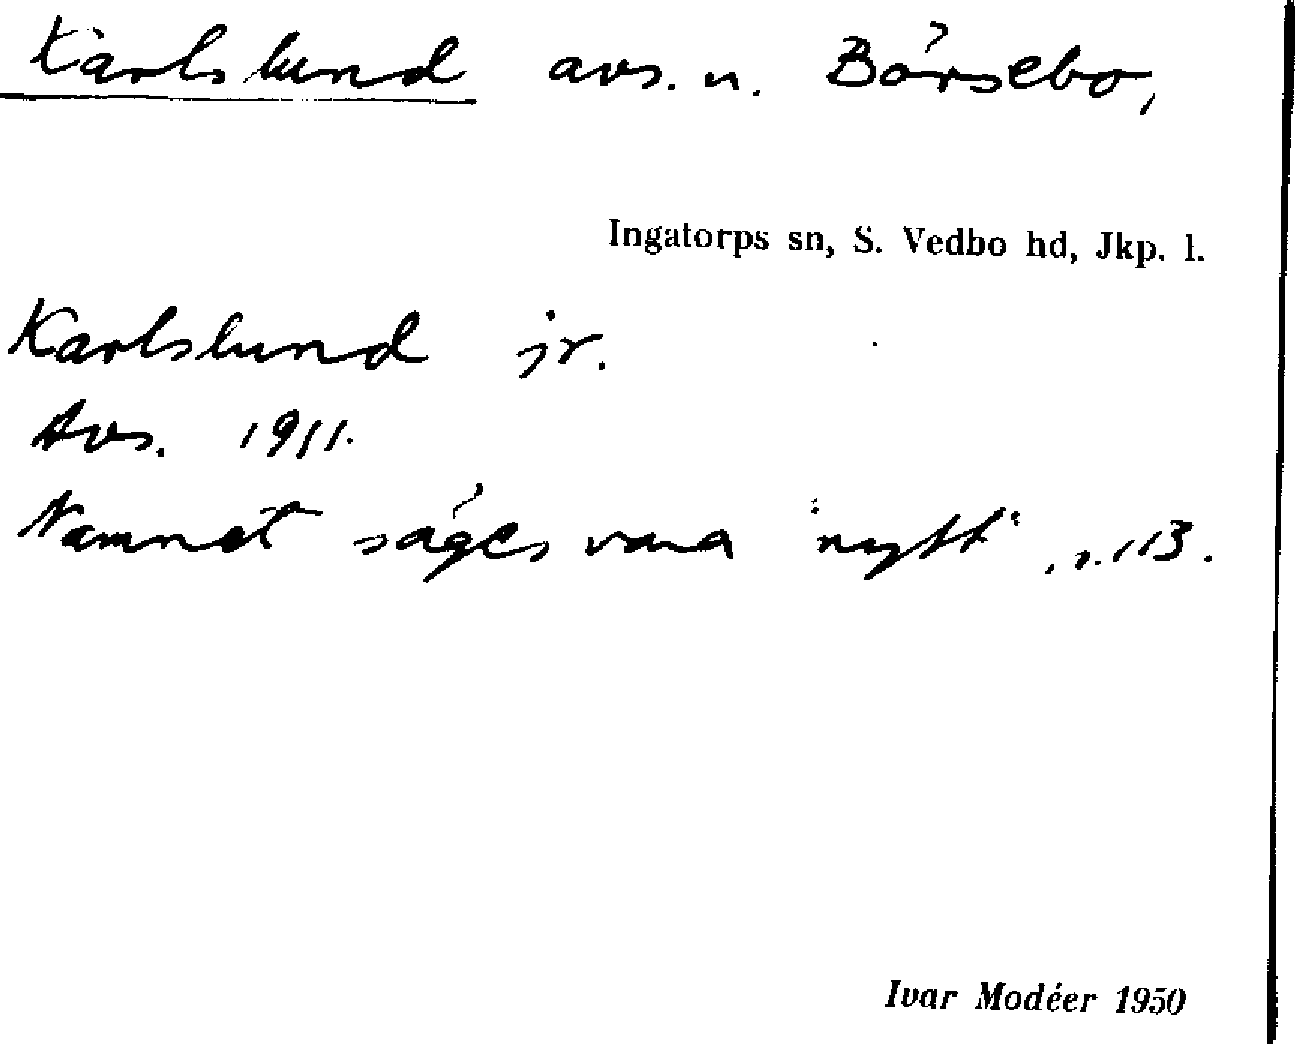 Karlslund avs. u. Börsebo,
Ingatorps sn, S. Vedbo hd, Jkp. l.
Karlslund jr.
Avs. 1911.
Namnet säges vara "nytt"
Ivar Modéer 1950